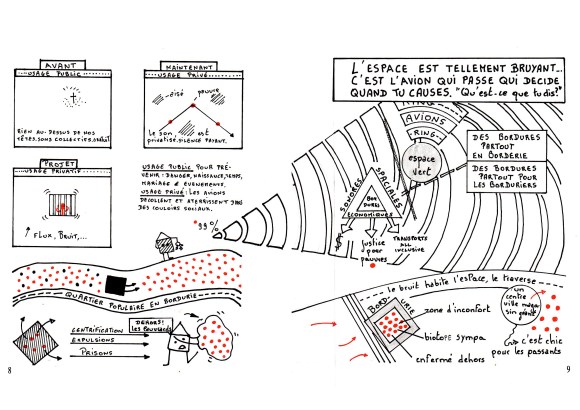 AVANT
USAGE PUBLIC
RIEN AU-DESSUS DE NOS
TÊTES. SONS COLLECTIFS, GRATUIT
MAINTENANT
USAGE PRIVÉ
aisé
pauvre
Le son, est
privatisé, silence payant.
PROJET
USAGE PRIVATIF
FLUX, BRUIT,...
USAGE PUBLIC POUR PRÉ-
VENIR: DANGER, NAISSANCE, TEMPS,
MARIAGE & EVENEMENTS.
USAGE PRIVÉ: LES AVIONS
DÉCOLLENT ET ATERRISSENT DANS
DES COULOIRS SOCIAUX.
99%
QUARTIER POPULAIRE EN BORDURIE
GENTRIFICATION
EXPULSIONS
PRISONS
DEHORS!
8
L'ESPACE EST TELLEMENT BRUYANT...
C'EST L'AVION QUI PASSE QUI DÉCIDE
QUAND TU CAUSES. "Qu'est-ce que tu dis?"
RING
AVIONS
RING
espace
vert
DES BORDURES
PARTOUT
EN BORDERIE
DES BORDURES
PARTOUT POUR
LES BORDURIERS
SONORES
SPACIALES
BOR
DURES
ECONOMIQUES
$
Justice
pour
pauvres
TRANSPORTS
ALL
INCLUSIVE
le bruit habite l'espace, le traverse
BORDURIE
zone d'inconfort
biotope sympa
enfermé dehors
un
centre
ville
c'est chic
pour les passants
9